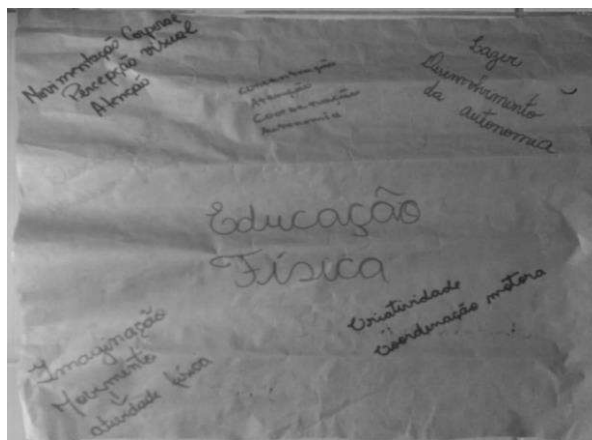 Movimentação Corporal
Percepção visual
Atenção
Concentração
Atenção
Coordenação
Autonomia
Lazer
Desenvolvimento
da autonomia
Educação
Física
Criatividade
Coordenação motora
Imaginação
Movimento
↓
atividade física